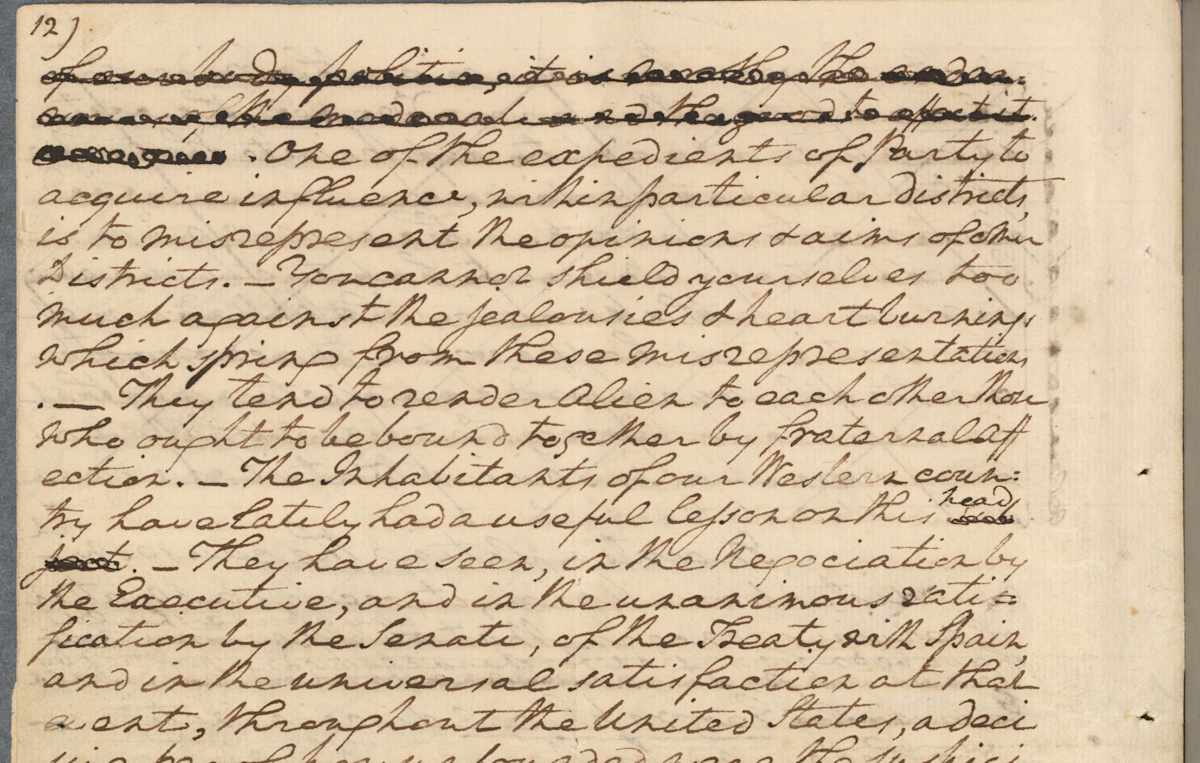 12)
. One of the expedients of Party to
acquire influence, within particular districts,
is to misrepresent the opinions & aims of other
Districts. — You cannot shield yourselves too
much against the jealousies & heart burnings
which spring from these misrepresentations
. — They tend to render Alien to each other those
who ought to be bound together by fraternal aff
ection. — The Inhabitants of our Western coun:
try have lately had a useful lesson on this head
. — They have seen, in the Negociation by
the Executive, and in the unanimous rati=
fication by the Senate, of the Treaty with Spain,
and in the universal satisfaction at that
event, throughout the United States, a deci